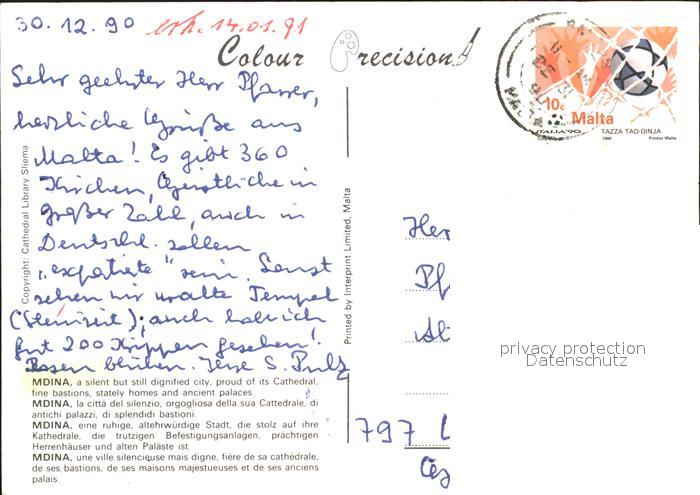 30.12.90 erh. 14.01.91
Colour Precision
Sehr geehrter Herr Pfarrer,
herzliche Grüße aus
Malta! Es gibt 360
Kirchen, Geistliche in
großer Zahl, auch in
Deutschl. sollen
"expatiete" sein. Sonst
sehen wir uralte Tempel
(Steinzeit); auch hab ich
gut 200 Krippen gesehen!
Rosen blühen. S.
MDINA, a silent but still dignified city, proud of its Cathedral,
fine bastions, stately homes and ancient palaces.
MDINA, la città del silenzio, orgogliosa della sua Cattedrale, di
antichi palazzi, di splendidi bastioni.
MDINA, eine ruhige, altehrwürdige Stadt, die stolz auf ihre
Kathedrale, die trutzigen Befestigungsanlagen, prächtigen
Herrenhäuser und alten Paläste ist.
MDINA, une ville silencieuse mais digne, fière de sa cathédrale,
de ses bastions, de ses maisons majestueuses et de ses anciens
palais.
Copyright: Cathedral Library Sliema
Printed by Interprint Limited, Malta
10c Malta
ITALIA '90
TAZZA TAD-DINJA
1990 Printex Malta
MALTA
Her
Pf
797
privacy protection
Datenschutz